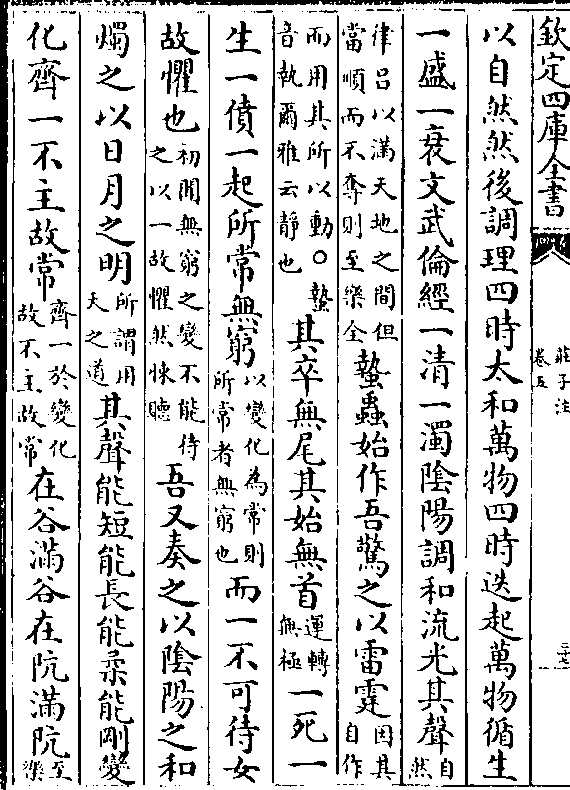 欽定四庫全書
莊子注
卷五
以自然然後調理四時太和萬物四時迭起萬物循生
一盛一衰文武倫經一清一濁隂陽調和流光其聲自然
律呂以滿天地之間但當順而不奪則至樂全蟄蟲始作吾驚之以雷霆因其自作
而用其所以動○蟄音執爾雅云靜也其卒無尾其始無首運轉無極一死一
生一僨一起所常無窮以變化為常則所常者無窮也而一不可待女
故懼也初聞無窮之變不能待之以一故懼然悚聽吾又奏之以陰陽之和
燭之以日月之明所謂用天之道其聲能短能長能柔能剛變
化齊一不主故常齊一於變化故不主故常在谷滿谷在阬滿阬至樂